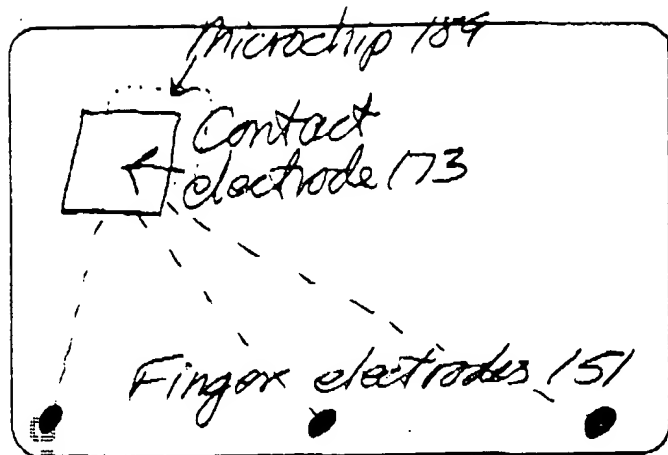 Microchip 189
Contact
electrode 173
Finger electrodes 151